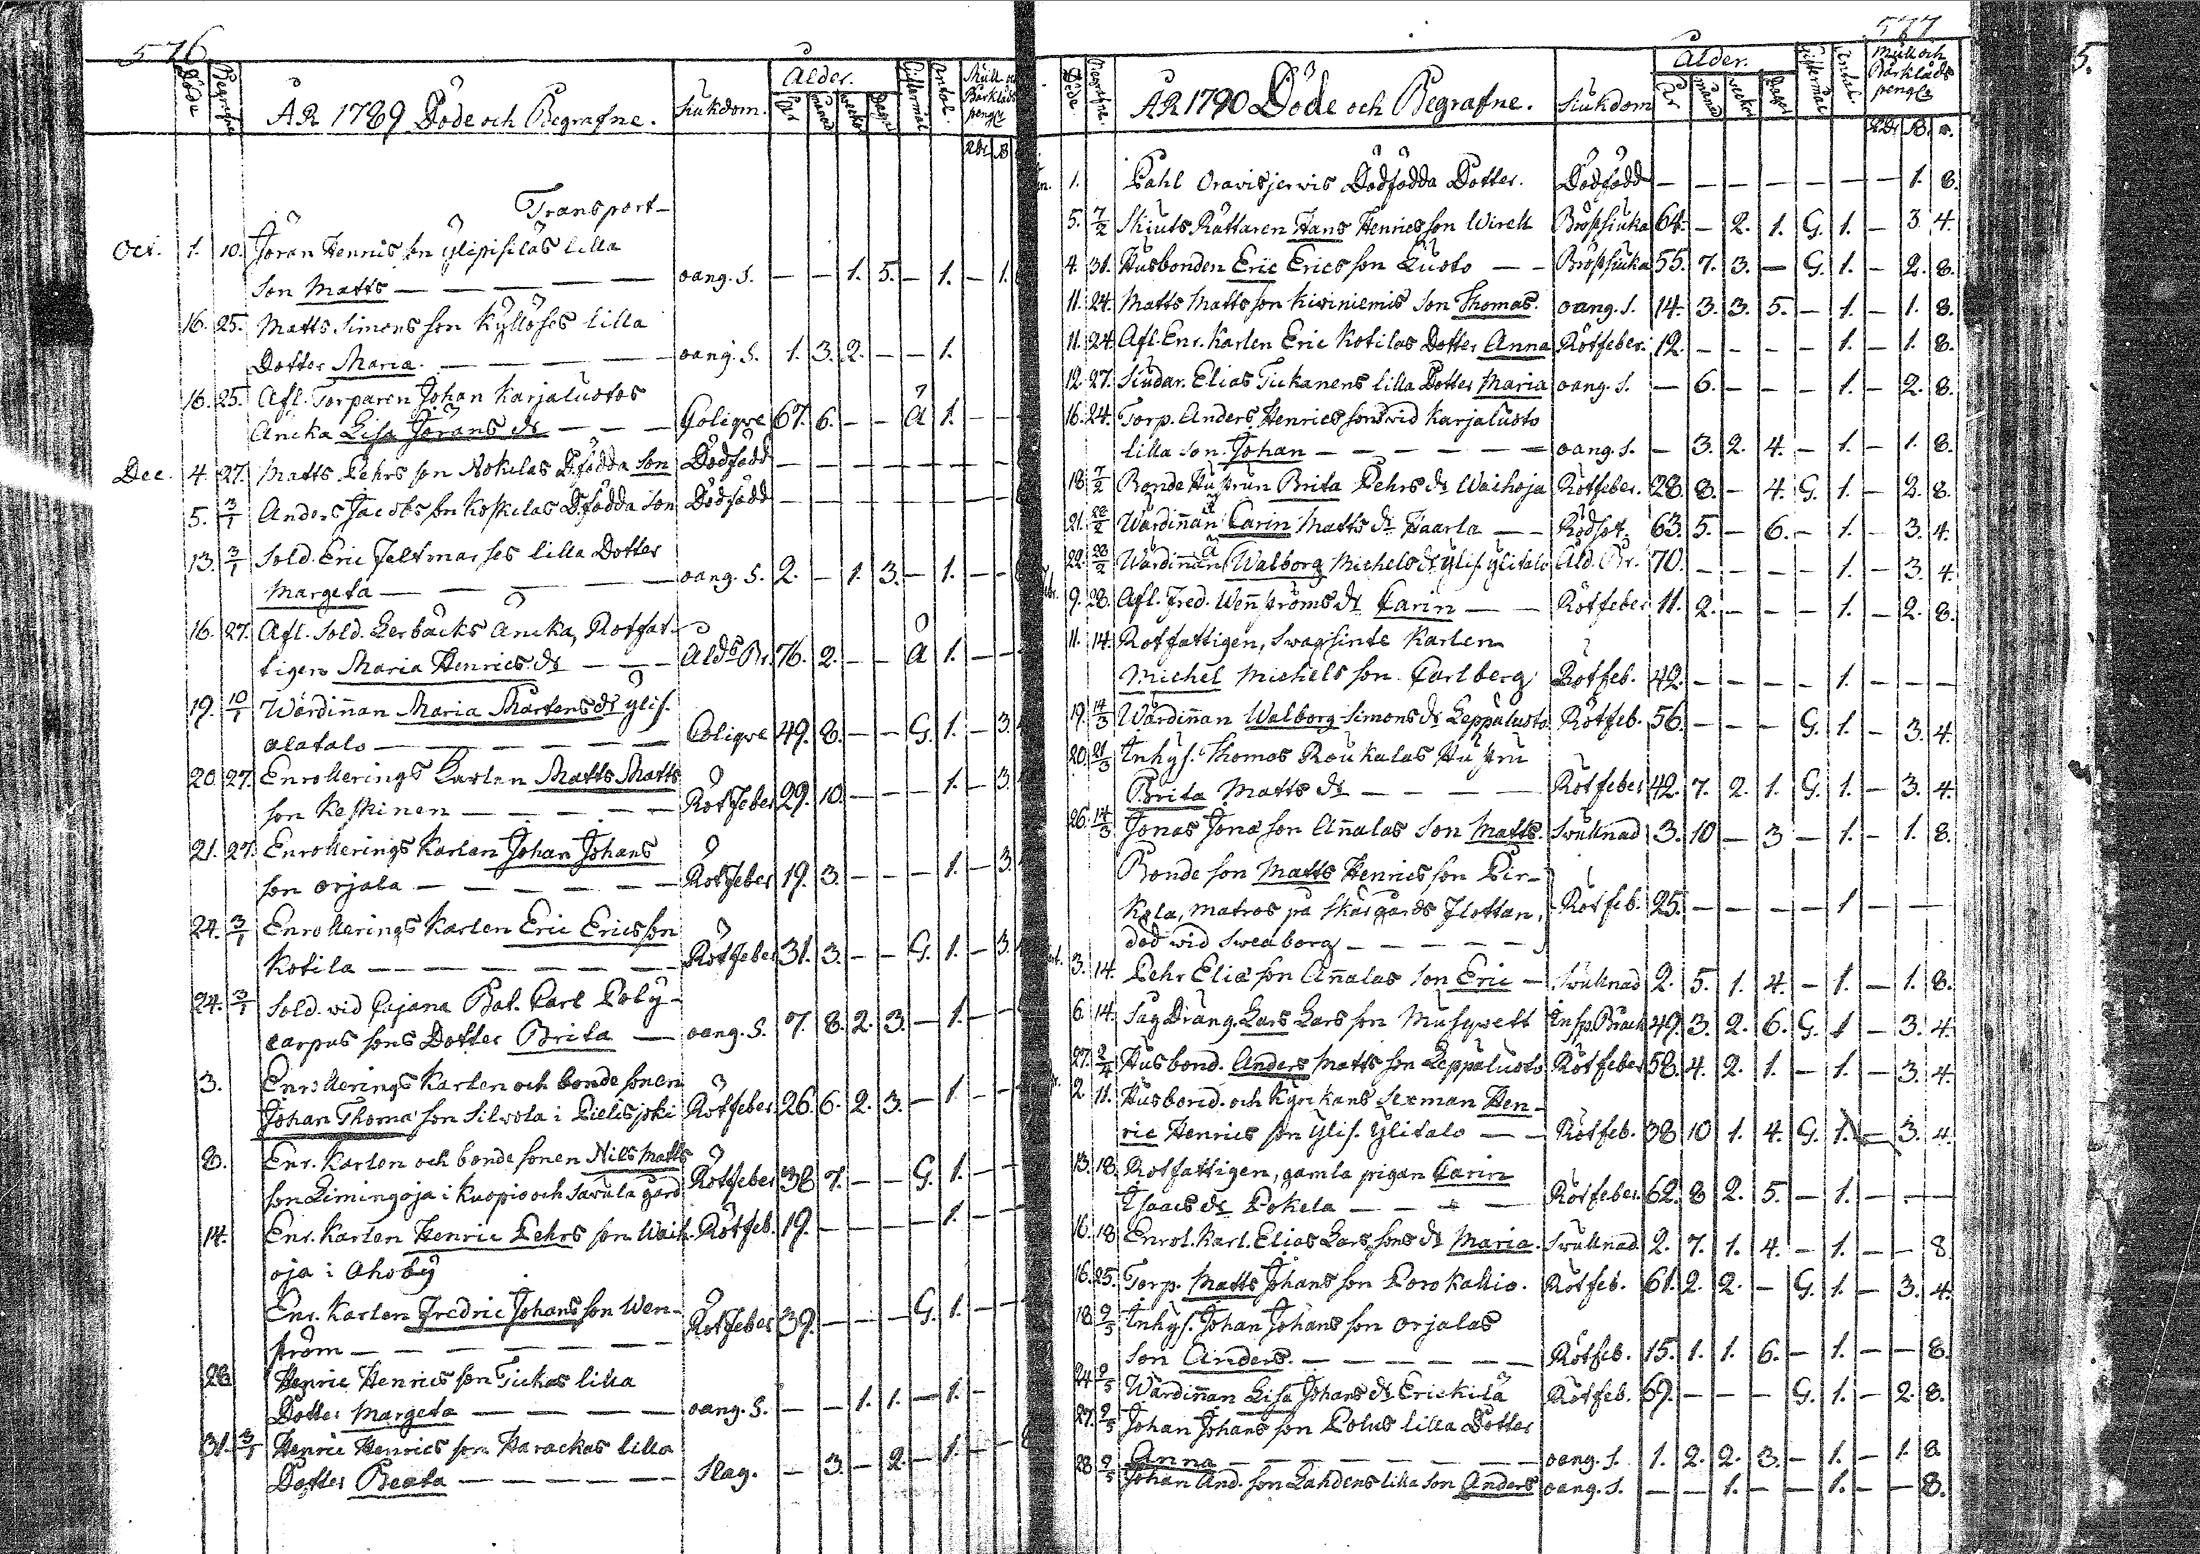 576
Döde
Begrafne
ÅR 1789 Döde och Begrafne.
Siukdom.
Ålder.
År
Månad
Weckor
Dagar
Giftermål
Antal
Mull och
Bårkläds
peng.
Rdr ß
Transport —
Oct. 1. 10. Jöran Henrics son Ylipisiläs lilla
Son Matts — — — — — oang. S. — — 1. 5. — 1. — 1.
16. 25. Matts Simons son Kyllöses lilla
Dotter Maria. — — — — oang. S. 1. 3. 2. — — 1.
16. 25. Afl. Torparen Johan Karjaluotos
Äncka Lisa Jörans dr — — — Colique 67. 6. — — Ä 1. —
Dec. 4. 27. Matts Pehrs son Nokelas D.födda son Dödfödd — — — — — —
5. 3/1 Anders Jacobs son Koskelas D.födda son Dödfödd — — — — — —
13. 3/1 Sold. Eric Feltmarses lilla Dotter
Margeta — — — — oang. S. 2. — 1. 3. — 1. — —
16. 27. Afl. Sold. Lerbäcks Äncka, Rotfat-
tigen Maria Henrics dr — — — Ålds Br. 76. 2. — — Ä 1. — —
19. 10/1 Wärdinnan Maria Mårtens dr Ylis.
alatalo — — — — — — Colique 49. 8. — — G. 1. — 3.
20. 27. Enrollerings Karlen Matts Matts
son Keskinen — — — — Rötfeber 29. 10. — — — 1. — 3.
21. 27. Enrollerings Karlen Johan Johans
son Orjala — — — — — — Rötfeber 19. 3. — — — 1. — 3.
24. 3/1 Enrollerings Karlen Eric Ericsson
Kotila — — — — — — — Rötfeber 31. 3. — — G. 1. — 3.
24. 3/1 Sold. wid Cajana Bat. Carl Poly-
carpus sons Dotter Brita — oang. S. 7. 8. 2. 3. — 1. — —
3. Enrollerings Karlen och bonde sonen
Johan Thoma son Silvola i Pielisjoki Rötfeber 26. 6. 2. 3. — 1. — —
8. Enr. Karlen och bonde sonen Nils Matts
son Limingoja i Kuopio och Savula gård Rötfeber 38 7. — — G. 1. — —
14. Enr. Karlen Henric Pehrs son Waih- Rötfeb. 19. — — — — 1. — —
oja i Ahoby
Enr. Karlen Fredric Johans son Wen-
ström — — — — — — Rötfeber 39. — — — G. 1. — —
28. Henric Henrics son Tickas lilla
Dotter Margeta — — — — oang. S. — — 1. 1. — 1. —
31. 3/1 Henric Henrics son Harackas lilla
Dotter Beata — — — — — Slag. — 3. — 2. — 1. — —
577
Döde.
Begrafne.
ÅR 1790 Döde och Begrafne.
Siukdom
Ålder.
År
Månad
Weckor
Dagar
Giftermål
Antal.
Mull och
Bårkläds
peng.
Rdr ß r.
1. Pahl Oravisjervis Dödfödda Dotter. Dödfödd — — — — — — — 1. 8.
5. 7/2 Skiuts Rättaren Hans Henrics son Wirell Bröstsiuka 64. — 2. 1. G. 1. — 3. 4.
4. 31. Husbonden Eric Erics son Luoto — — Bröstsiuka 55. 7. 3. — G. 1. — 2. 8.
11. 24. Matts Matts son Kiviniemis Son Thomas. oang. S. 14. 3. 3. 5. — 1. — 1. 8.
11. 24. Afl. Enr. Karlen Eric Kotilas Dotter Anna Rötfeber. 12. — — — — 1. — 1. 8.
12. 27. Siudar. Elias Tickanens lilla Dotter Maria oang. S. — 6. — — — 1. — 2. 8.
16. 24. Torp. Anders Henrics sons wid Karjaluoto
lilla son Johan — — — — — — oang. S. — 3. 2. 4. — 1. — 1. 8.
18 7/2 Bonde Hustrun Brita Pehrs dr Waihoja Rötfeber. 28. 8. — 4. G. 1. — 2. 8.
21. 28/2 Wärdinnan Carin Matts dr Paarla — — Rödsot. 63. 5. — 6. — 1. — 3. 4.
22. 28/2 Wärdinnan Walborg Michels dr Ylis. Ylitalo Åld. Br. 70. — — — — 1. — 3. 4.
9. 28. Afl. Fred. Wennströms dr Carin — — Rötfeber 11. 2. — — — 1. — 2. 8.
11. 14. Rotfattigen, Swagsinte Karlen
Michel Michels son Carlberg Rötfeb. 42. — — — — 1. — — —
19. 14/3 Wärdinnan Walborg Simons dr Leppäluoto Rötfeb. 56. — — — G. 1. — 3. 4.
20. 21/3 Inhys. Thomas Roukalas Hustru
Brita Matts dr — — — — Rötfeber 42. 7. 2. 1. G. 1. — 3. 4.
26. 14/3 Jonas Jona son Annalas Son Matts. Swullnad 3. 10 — 3 — 1. — 1. 8.
Bonde son Matts Henrics son Pir-
kola, Matros på Skärgårds Flottan, Rötfeb. 25. — — — — 1 — —
död wid Sweaborg — — — — —
3. 14. Pehr Elia son Annalas Son Eric — Swullnad 2. 5. 1. 4. — 1. — 1. 8.
6. 14. Såg Dräng. Lars Lars son Musquett Insp. Bräck 49. 3. 2. 6. G. 1 — 3. 4.
27. 2/4 Husbond. Anders Matts son Leppäluoto Rötfeber 58. 4. 2. 1. — 1. — 3. 4.
2 11. Husbond. och Kyrckans Sexman Hen-
ric Henrics son Ylis. Ylitalo — — Rötfeb. 38 10 1. 4. G. 1. — 3. 4.
13. 18. Rotfattigen, gamla pigan Carin
Isaacs dr Pokela — — — — Rötfeber. 62. 8 2. 5. — 1. — — —
16. 18 Enrol. Karl. Elias Lars sons dr Maria. Swullnad. 2. 7. 1. 4. — 1. — — 8.
16. 25. Torp. Matts Johans son Porokallio. Rötfeb. 61. 2. 2. — G. 1. — 3. 4.
18. 9/5 Inhys. Johan Johans son Orjalas
Son Anders. — — — — — Rötfeb. 15. 1. 1. 6. — 1. — — 8.
24. 9/5 Wärdinnan Lisa Johans dr Erickilä Rötfeb. 69. — — — G. 1. — 2. 8.
27. 9/5 Johan Johans son Polus lilla Dotter
Anna — — — — — oang. S. 1. 2. 2. 3. — 1. — 1. 8
28. 9/5 Johan And. son Lahdens lilla son Anders oang. S. — — 1. — — 1. — — 8.